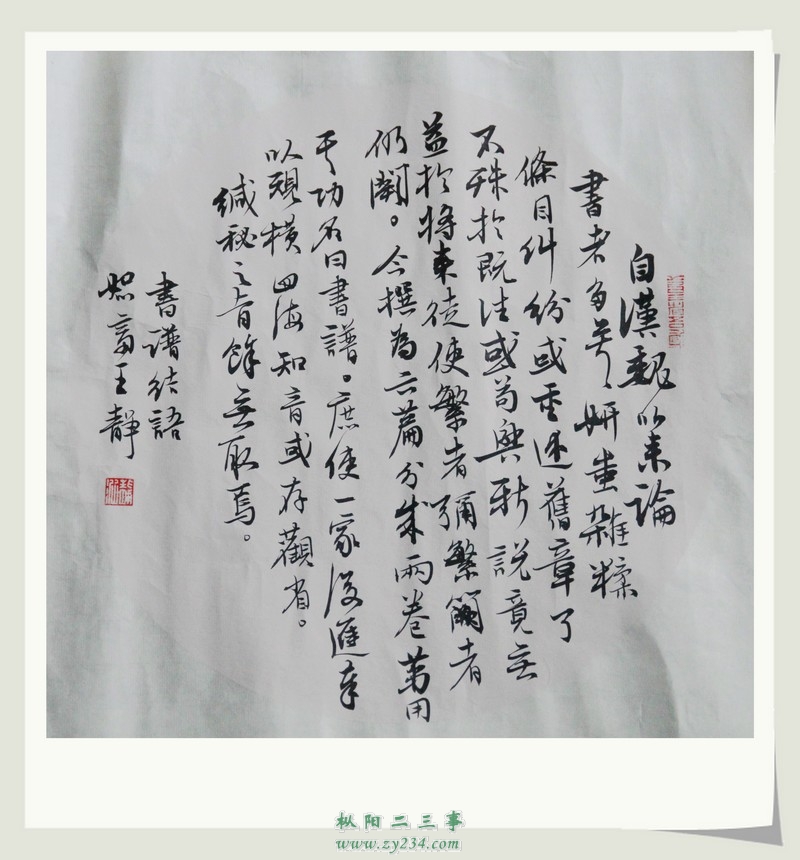 自漢魏以来論
書者多矣妍蚩雜糅
條目糾紛或重述舊章了
不殊於既往或苟興新說竟無
益於将来徒使繁者彌繁闕者
仍闕。今撰為六篇分成兩卷第用
其功名曰書譜。庶使一家後進奉
以規模四海知音或存觀省。
緘秘之旨餘無取焉。
書譜結語
王靜
枞阳二三事
www.zy234.com